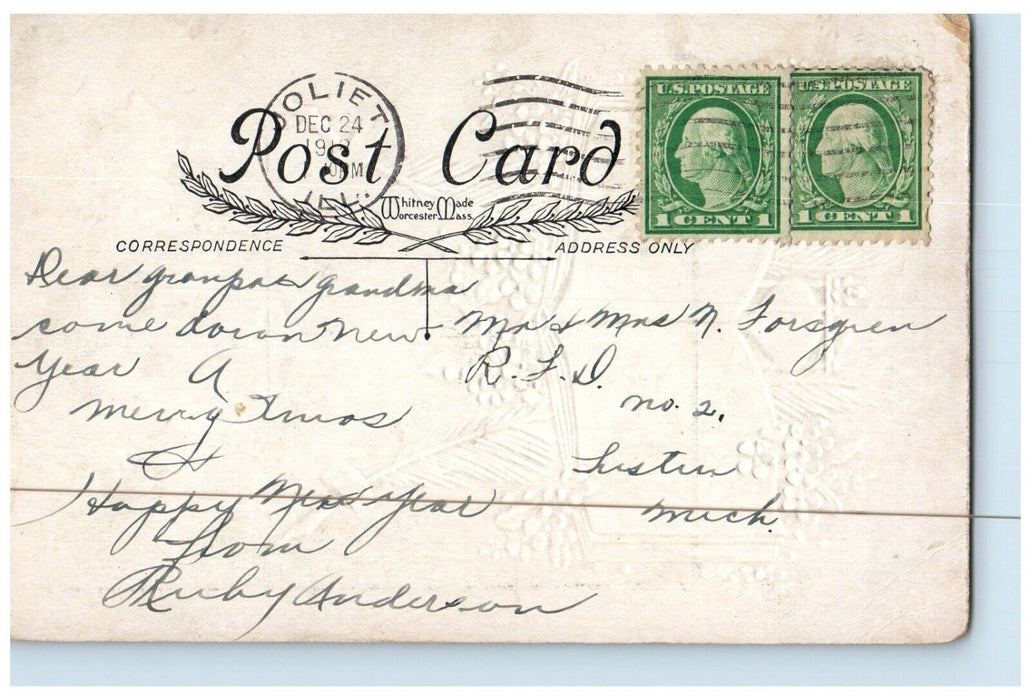 JOLIET
DEC 24
ILL.
Post Card
Whitney Made
Worcester Mass.
U.S. POSTAGE
1 CENT 1
U.S. POSTAGE
1 CENT 1
CORRESPONDENCE
ADDRESS ONLY
Dear Granpa & Grandma
come down New
Year A
Merry Xmas
&
Happy New Year
from
Ruby Anderson
Mr & Mrs N. Forsgren
R.F.D.
No. 2.
Tustin
Mich.